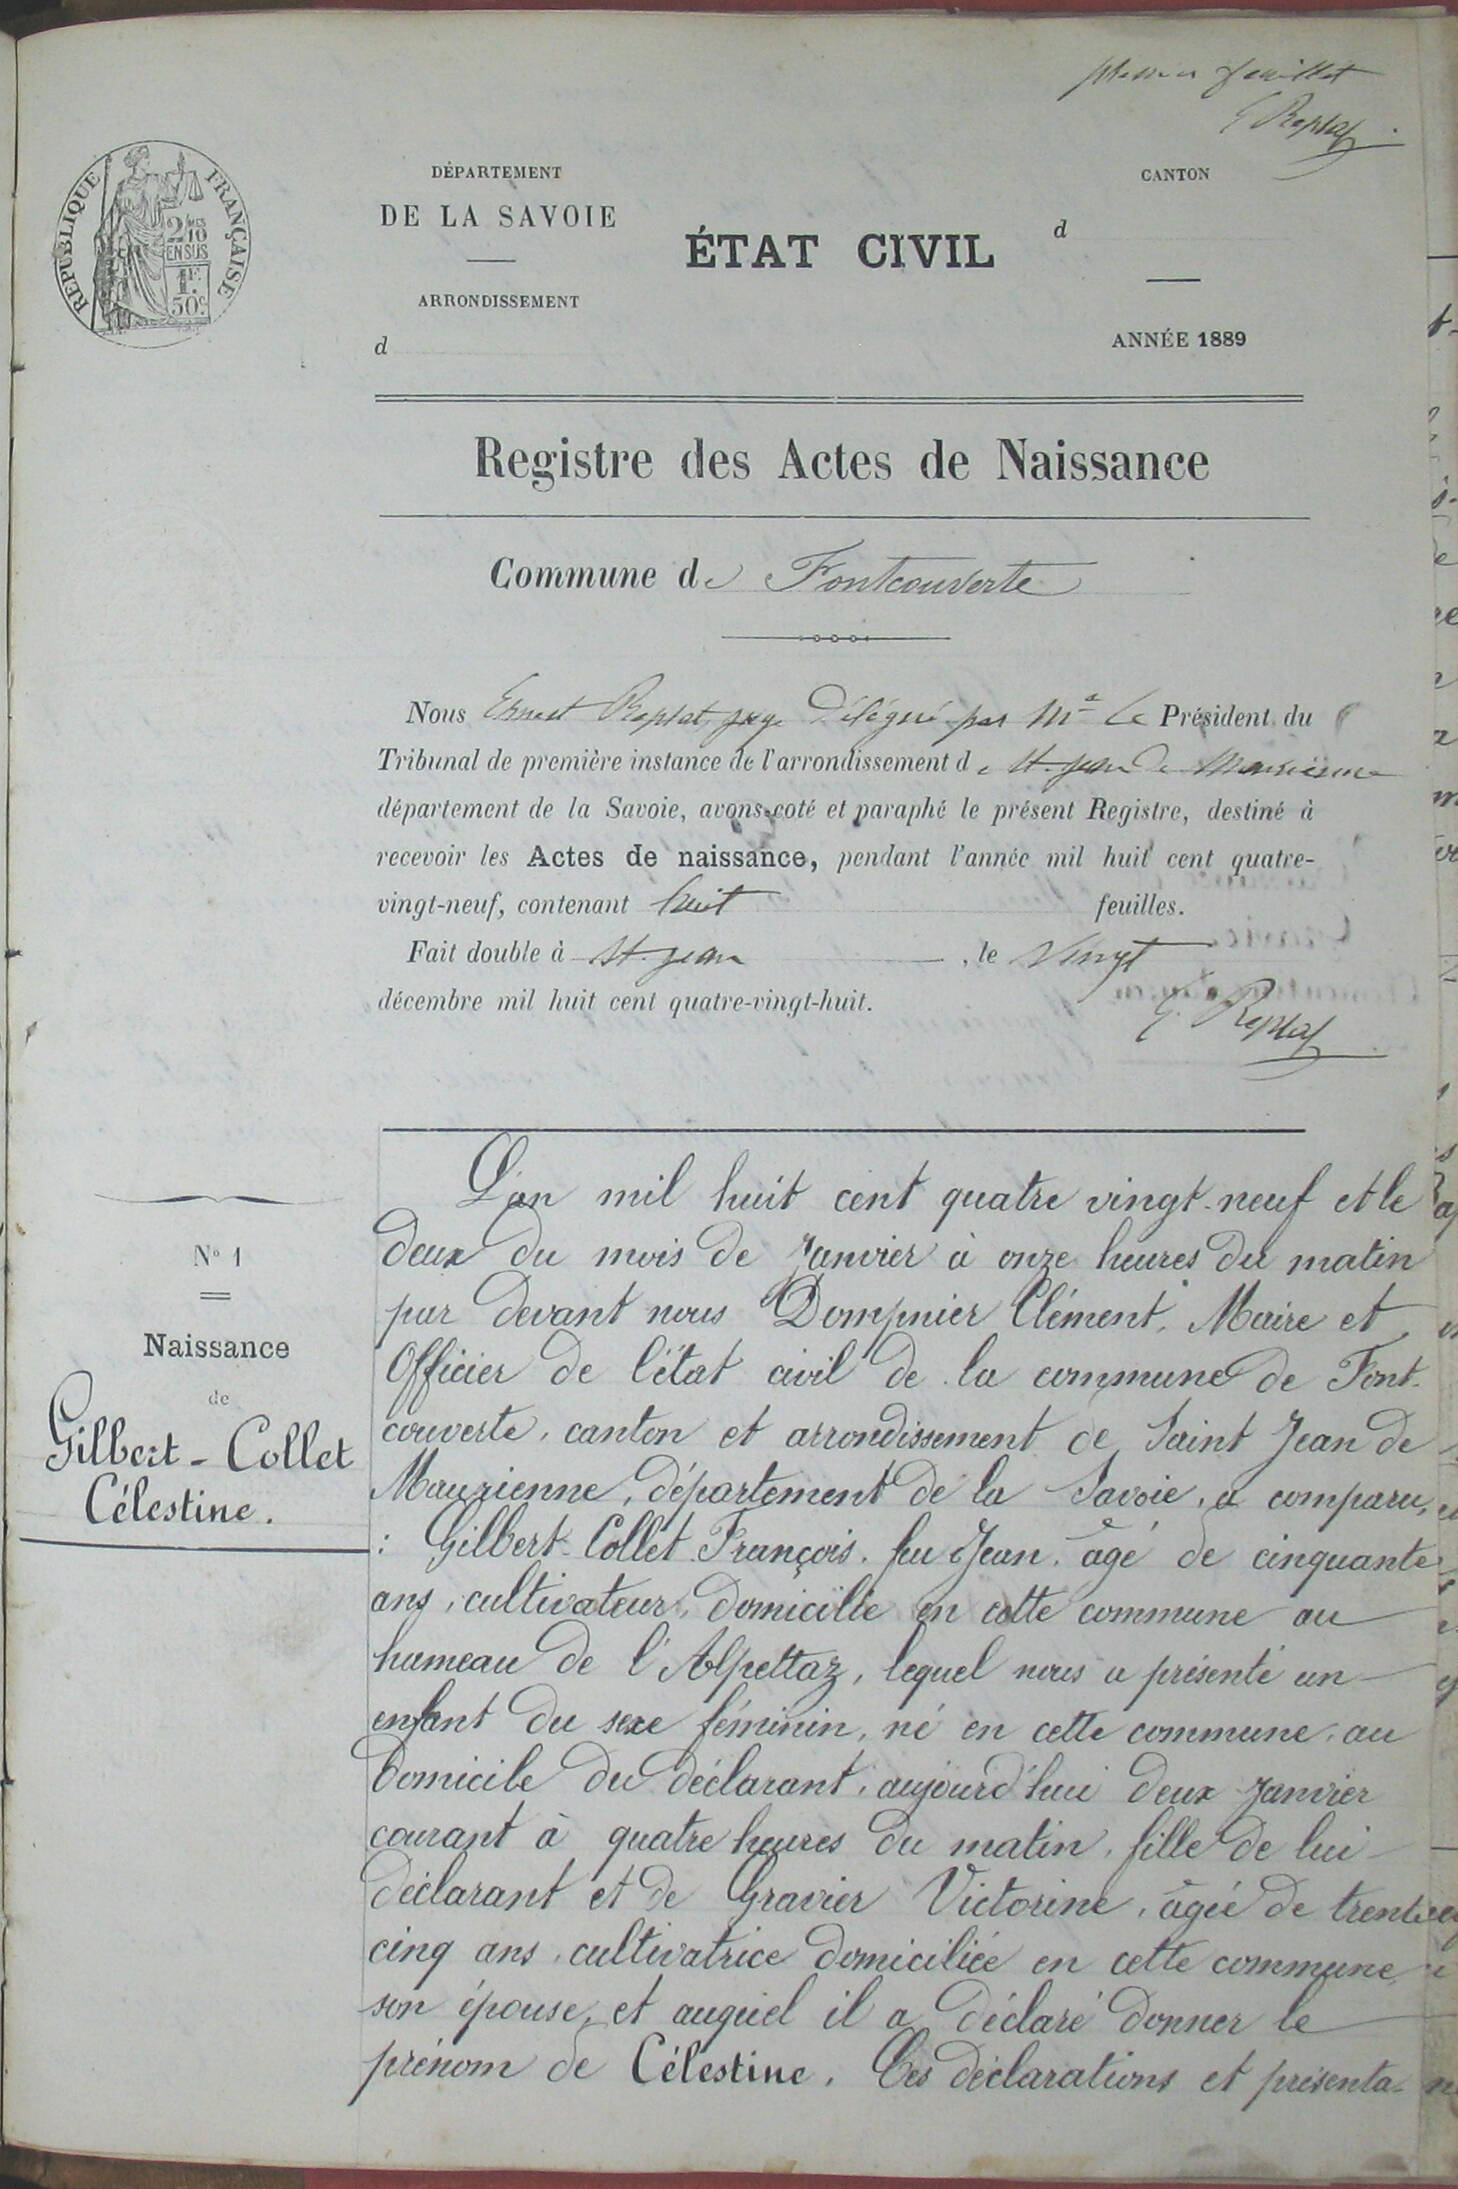 premier feuillet
E Replat
RÉPUBLIQUE FRANÇAISE
2/10MES
EN SUS
1F.
50C
DÉPARTEMENT
DE LA SAVOIE
ARRONDISSEMENT
d
ÉTAT CIVIL
CANTON
d
ANNÉE 1889
Registre des Actes de Naissance
Commune de Fontcouverte
Nous Ernest Replat, juge délégué par Mr Le Président du
Tribunal de première instance de l'arrondissement de St. Jean de Maurienne
département de la Savoie, avons coté et paraphé le présent Registre, destiné à
recevoir les Actes de naissance, pendant l'année mil huit cent quatre-
vingt-neuf, contenant huit feuilles.
Fait double à St. Jean, le vingt
décembre mil huit cent quatre-vingt-huit.
E. Replat
No 1
Naissance
de
Gilbert-Collet
Célestine.
L'an mil huit cent quatre vingt-neuf et le
deux du mois de Janvier à onze heures du matin
par devant nous Dompnier Clément, Maire et
Officier de l'état civil de la commune de Font-
couverte, canton et arrondissement de Saint Jean de
Maurienne, département de la Savoie, a comparu,
: Gilbert-Collet François, feu Jean, âgé de cinquante
ans, cultivateur, domicilié en cette commune au
hameau de l'Alpettaz, lequel nous a présenté un
enfant du sexe féminin, né en cette commune, au
domicile du déclarant, aujourd'hui deux Janvier
courant à quatre heures du matin, fille de lui
déclarant et de Gravier Victorine, âgée de trente
cinq ans, cultivatrice domiciliée en cette commune
son épouse, et auquel il a déclaré donner le
prénom de Célestine. Ces déclarations et présenta-